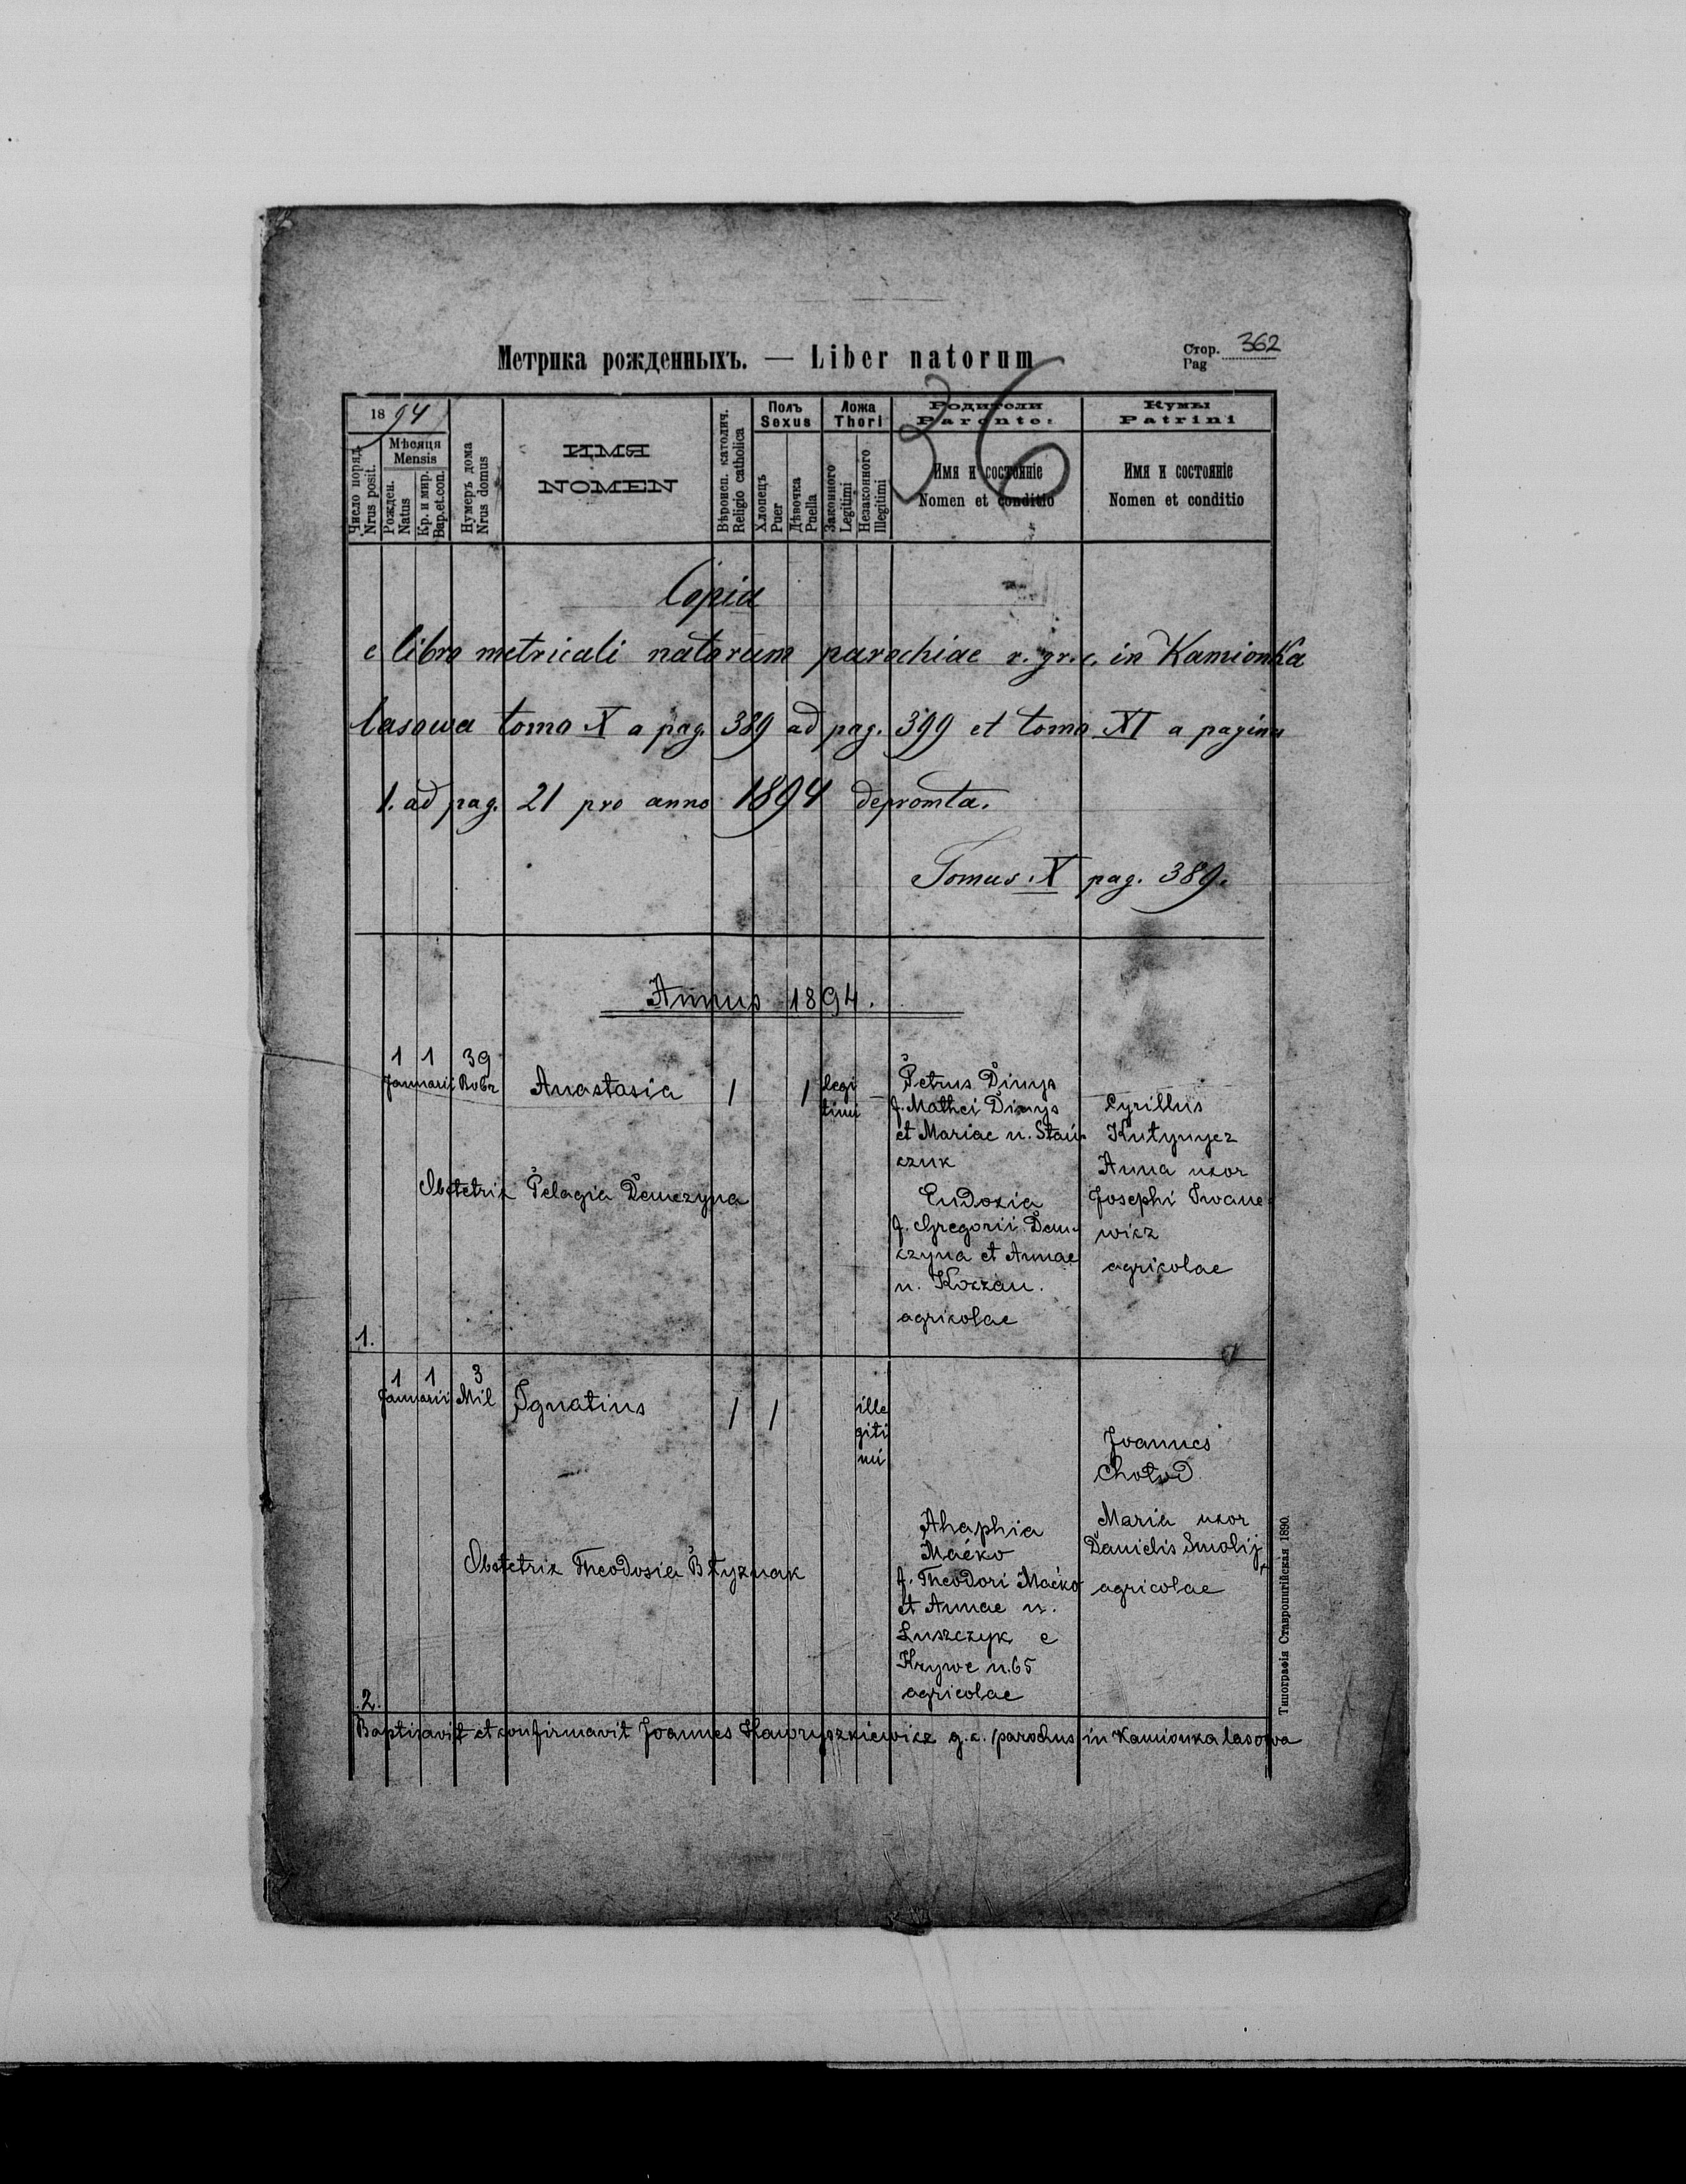 Метрика рожденныхъ. — Liber natorum
Стор. 362
Pag
36
18 94
Число поряд.
Nrus posit.
Мѣсяця
Mensis
Рожден.
Natus
Кр. и мир.
Bap.et.con.
Нумеръ дома
Nrus domus
ИМЯ
NOMEN
Вѣроисп. католич.
Religio catholica
Полъ
Sexus
Хлопецъ
Puer
Дѣвочка
Puella
Ложа
Thori
Законного
Legitimi
Незаконного
Illegitimi
Родители
Parentes
Имя и состоянiе
Nomen et conditio
Кумы
Patrini
Имя и состоянiе
Nomen et conditio
Copia
e libro metricali natorum parochiae r. gr. c. in Kamionka
lasowa tomo X a pag. 389 ad pag. 399 et tomo XI a pagina
1. ad pag. 21 pro anno 1894 depromta.
Tomus X pag. 389.
Annus 1894.
1 1 39
Januarii
Anastasia 1 1 legi
timi
Petrus Dinys
f. Mathei Dinys
et Mariae n. Stań-
czuk
Eudoxia
f. Gregorii Dem-
czyna et Annae
n. Koczan.
agricolae
Cyrillus
Kutynycz
Anna uxor
Josephi Iwane-
wicz
agricolae
Obstetrix Pelagia Demczyna
1.
1 1 3
Januarii Mil Ignatius 1 1 ille
giti
mi
Ahaphia
Maćko
f. Theodori Maćko
et Annae n.
Łuszczyk e
Krywe n. 65
agricolae
Joannes
Chołod
Maria uxor
Danielis Smolij
agricolae
Obstetrix Theodosia
2.
Baptisavit et confirmavit Joannes Hawryszkiewicz g. c. parochus in Kamionka lasowa
Типографія Ставропигійская 1890.